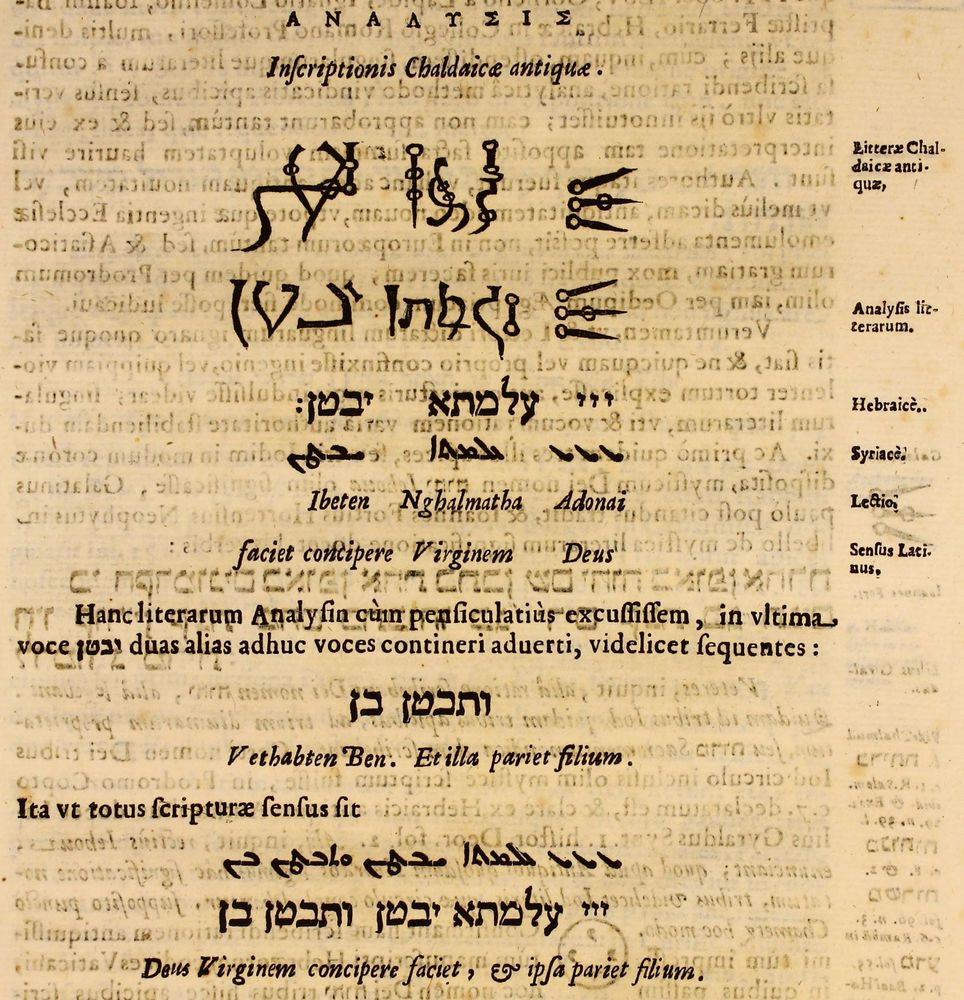 ΑΝΑΛΥΣΙΣ
Inſcriptionis Chaldaicæ antiquæ.
Litteræ Chal-
daicæ anti-
quæ,
Analyſis lit-
terarum.
ייי עלמתא יבטן:
Hebraicè.
ܝܝܝ ܥܠܡܬܐ ܝܒܛܢ
Syriacè.
Ibeten Nghalmatha Adonai
Lectio.
faciet concipere Virginem Deus
Senſus Lati-
nus.
Hanc literarum Analyſin cùm penſiculatiùs excuſſiſſem, in vltima
voce יבטן duas alias adhuc voces contineri aduerti, videlicet ſequentes:
ותבטן בן
Vethabten Ben. Et illa pariet filium.
Ita vt totus ſcripturæ ſenſus ſit
ܝܝܝ ܥܠܡܬܐ ܝܒܛܢ ܘܬܒܛܢ ܒܢ
ייי עלמתא יבטן ותבטן בן
Deus Virginem concipere faciet, & ipſa pariet filium.